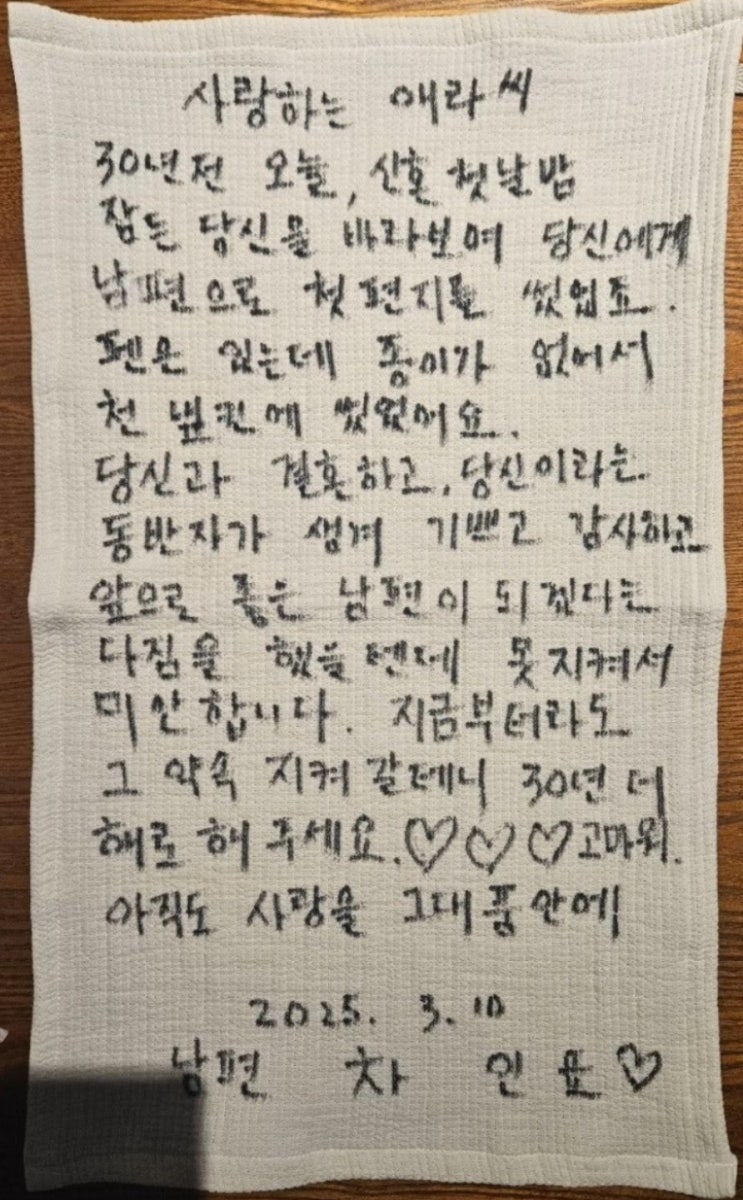 사랑하는 애라씨
30년전 오늘, 신혼 첫날밤
잠든 당신을 바라보며 당신에게
남편으로 첫 편지를 썼었죠.
펜은 있는데 종이가 없어서
천 냅킨에 썼었어요.
당신과 결혼하고, 당신이라는
동반자가 생겨 기쁘고 감사하고
앞으로 좋은 남편이 되겠다는
다짐을 했을텐데 못지켜서
미안합니다. 지금부터라도
그 약속 지켜 갈테니 30년 더
해로 해 주세요.♡♡♡고마워.
아직도 사랑을 그대품안에
2025. 3. 10
남편 차 인 표♡